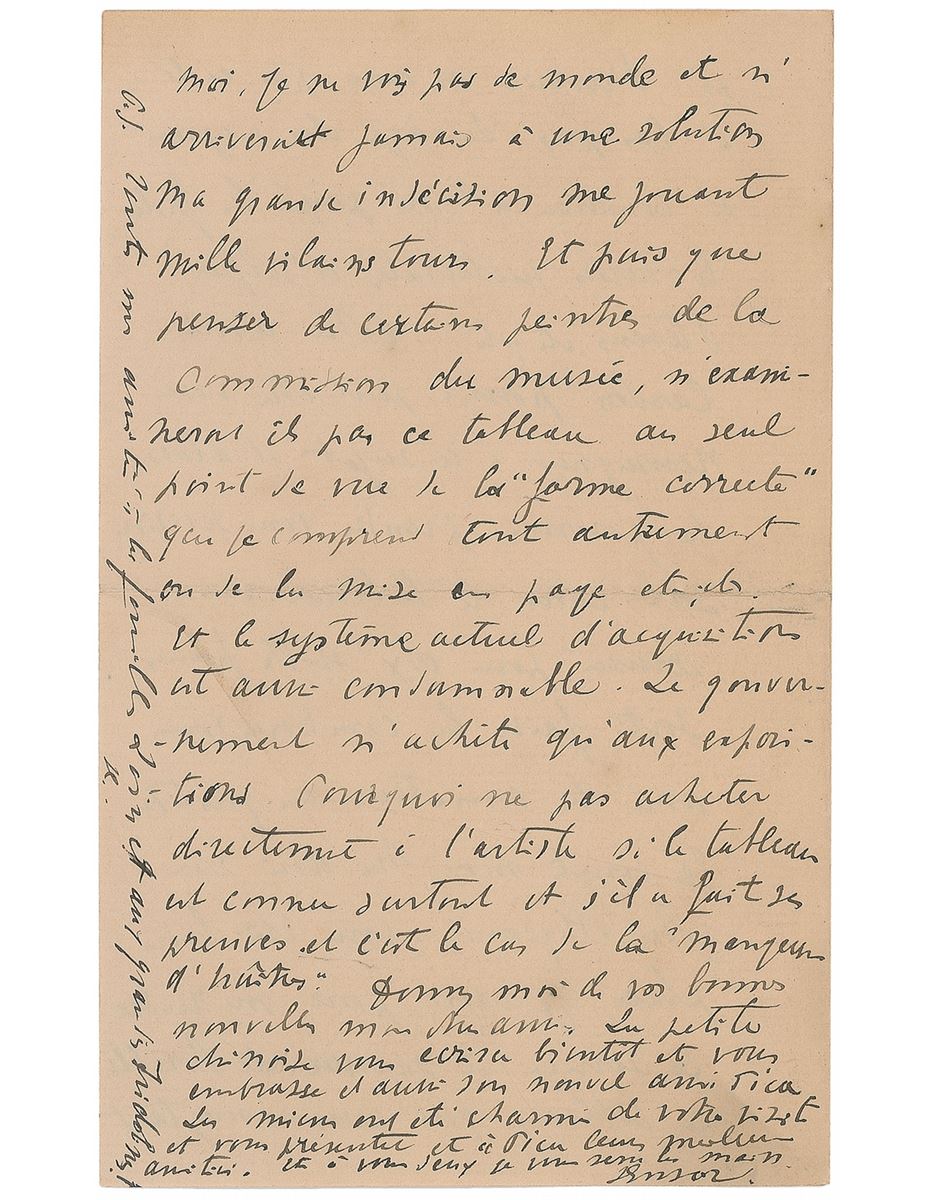 Moi, Je ne vois pas de monde et n'
arriverait jamais à une solution
Ma grande indécision me jouant
mille vilains tours. Et puis que
penser de certains peintres de la
Commission du musée, n'exami-
neront ils pas ce tableau au seul
point de vue de la "forme correcte"
que je comprend tout autrement
ou de la mise en page etc, etc.
Et le système actuel d'acquisition
est aussi condamnable. Le gouver-
-nement n'achète qu'aux exposi-
-tions Pourquoi ne pas acheter
directement à l'artiste si le tableau
est connu surtout et s'il a fait ses
preuves et c'est le cas de la "mangeuse
d'huîtres." Donnez moi de vos bonnes
nouvelles mon cher ami. La petite
chinoise vous écrira bientôt et vous
embrasse et aussi son nouvel ami Dica
Les miens ont été charmés de votre visite
et vous présentent et à leurs meilleurs
amitiés. et à vous deux je vous serre les mains.
Ensor.
P.S. Toutes mes amitiés à la famille et aux grands